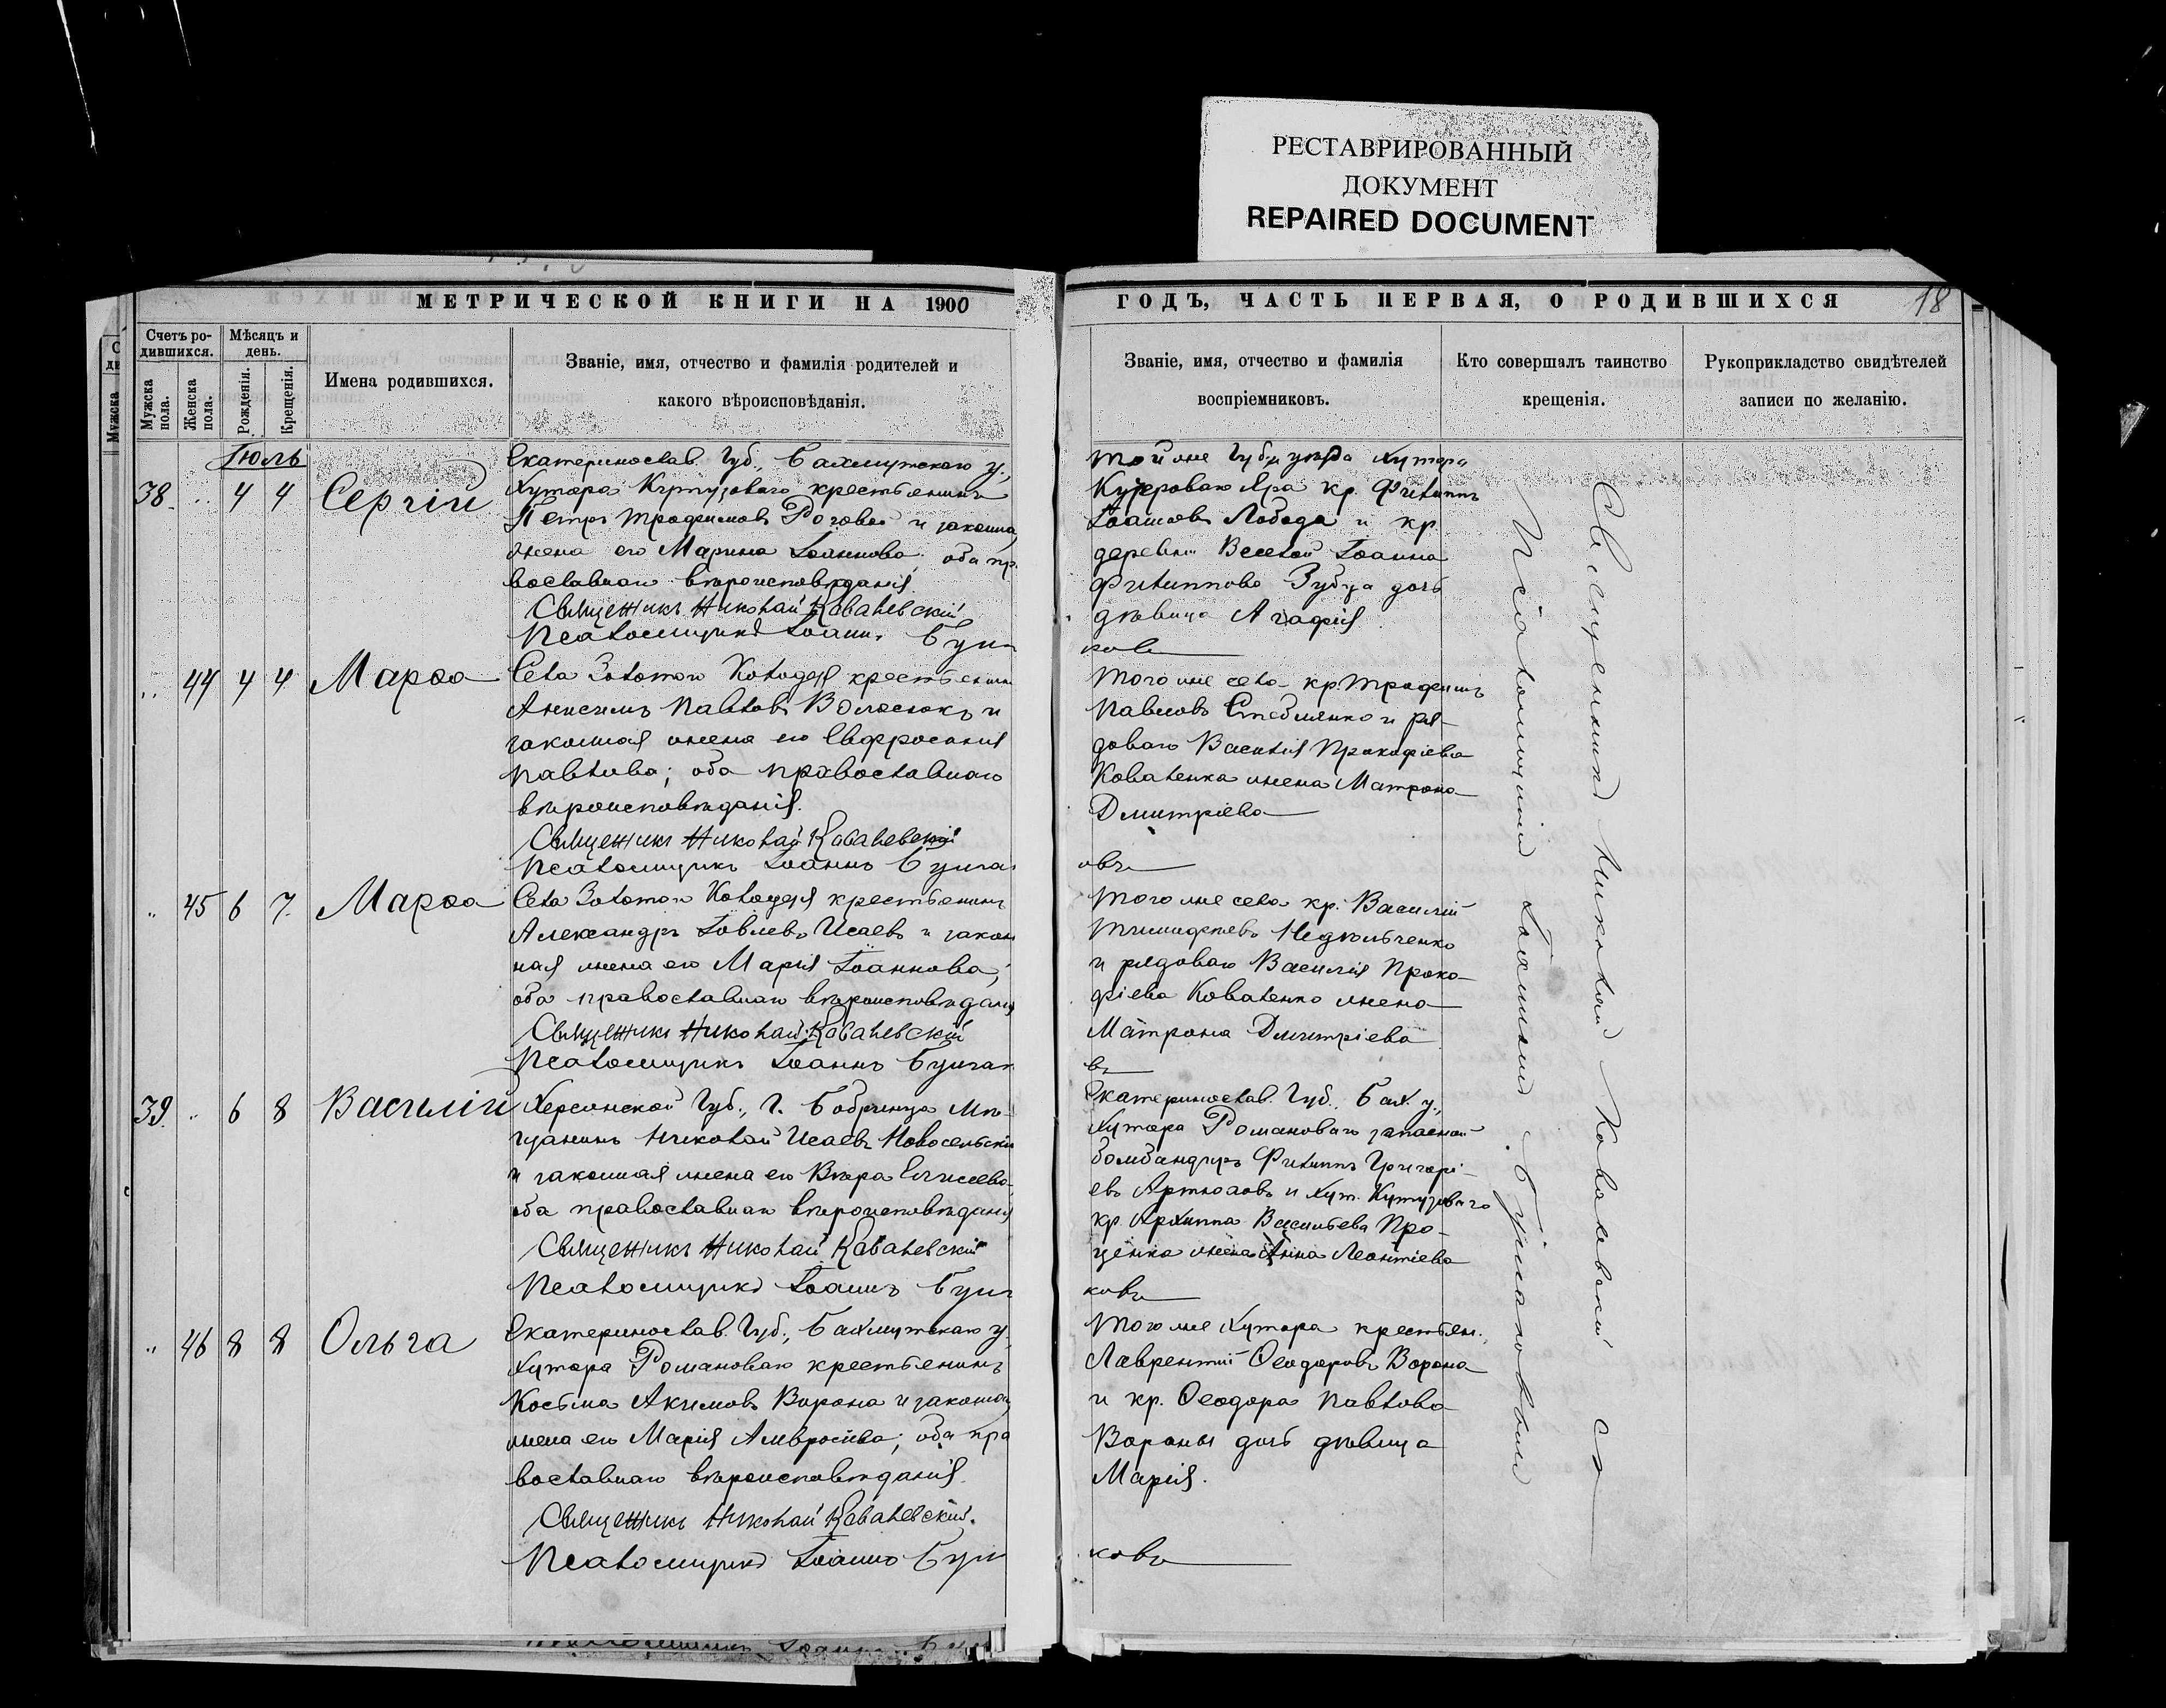 РЕСТАВРИРОВАННЫЙ
ДОКУМЕНТ
REPAIRED DOCUMENT
МЕТРИЧЕСКОЙ КНИГИ НА 1900
Счетъ ро-
дившихся.
Мѣсяцъ и
день.
Мужска
пола.
Женска
пола.
Рожденія.
Крещенія.
Имена родившихся.
Званіе, имя, отчество и фамилія родителей и
какого вѣроисповѣданія.
Іюль
38 .. 4 4 Сергій
Екатеринослав. Губ., Бахмутскаго у.,
Хутора Кутузоваго крестьянинъ
Петръ Трофимовъ Роговой и законна
жена его Марина Іоаннова; оба пр.
вославнаго вѣроисповѣданія
Священникъ Николай Ковалевскій
Псаломщикъ Іоаннъ
.. 44 4 4 Марѳа
Села Золотого Колодезя крестьянинъ
Анисимъ Павловъ и
законная жена его Евфросинія
Павлова; оба православнаго
вѣроисповѣданія.
Священникъ Николай Ковалевскій
Псаломщикъ Іоаннъ
.. 45 6 7 Марѳа
Села Золотого Колодезя крестьянинъ
Александръ Іовлевъ Исаевъ и закон
ная жена его Марія Іоаннова;
оба православнаго вѣроисповѣданія
Священникъ Николай Ковалевскій
Псаломщикъ Іоаннъ
39. .. 6 8 Василій
Херсонской Губ., Г. Бобринца Мѣ-
щанинъ Николай Исаевъ Новосельскій
и законная жена его Вѣра Елисеева
оба православнаго вѣроисповѣданія
Священникъ Николай Ковалевскій
Псаломщикъ Іоаннъ
.. 46 8 8 Ольга
Екатеринослав. Губ., Бахмутскаго у.
Хутора Романоваго крестьянинъ
Косьма Акимовъ Ворона и законная
жена его Марія Амвросіева; оба пра
вославнаго вѣроисповѣданія.
Священникъ Николай Ковалевскій.
Псаломщикъ Іоаннъ
ГОДЪ, ЧАСТЬ ПЕРВАЯ, О РОДИВШИХСЯ
18
Званіе, имя, отчество и фамилія
воспріемниковъ.
Кто совершалъ таинство
крещенія.
Рукоприкладство свидѣтелей
записи по желанію.
той же Губ. и уѣзда Хутора
Яра кр. Филиппъ
Іоанновъ Лобода и кр.
деревни Веселой Іоанна
Филиппова Зубца дочь
дѣвица Агафія
ковъ
того же села кр. Трофимъ
Павловъ и ря-
доваго Василія Прокофіева
Коваленка жена Матрона
Дмитріева
овъ
того же села кр. Василій
Тимофѣевъ Недѣльченко
и рядоваго Василія Проко-
фіева Коваленко жена
Матрона Дмитріева
въ
Екатеринослав. Губ. Бах. у.,
Хутора Романоваго запасной
бомбандиръ Филиппъ Григорі-
евъ и хут. Кутузоваго
кр. Архиппа Васильева Про-
ценка жена Анна Леонтіева
ковъ
того же Хутора крестьян.
Лаврентій Ѳеодоровъ Ворона
и кр. Ѳеодора Павлова
Вороны дочь дѣвица
Марія.
ковъ
Священникъ Николай Ковалевскій съ
Псаломщикомъ Іоанномъ